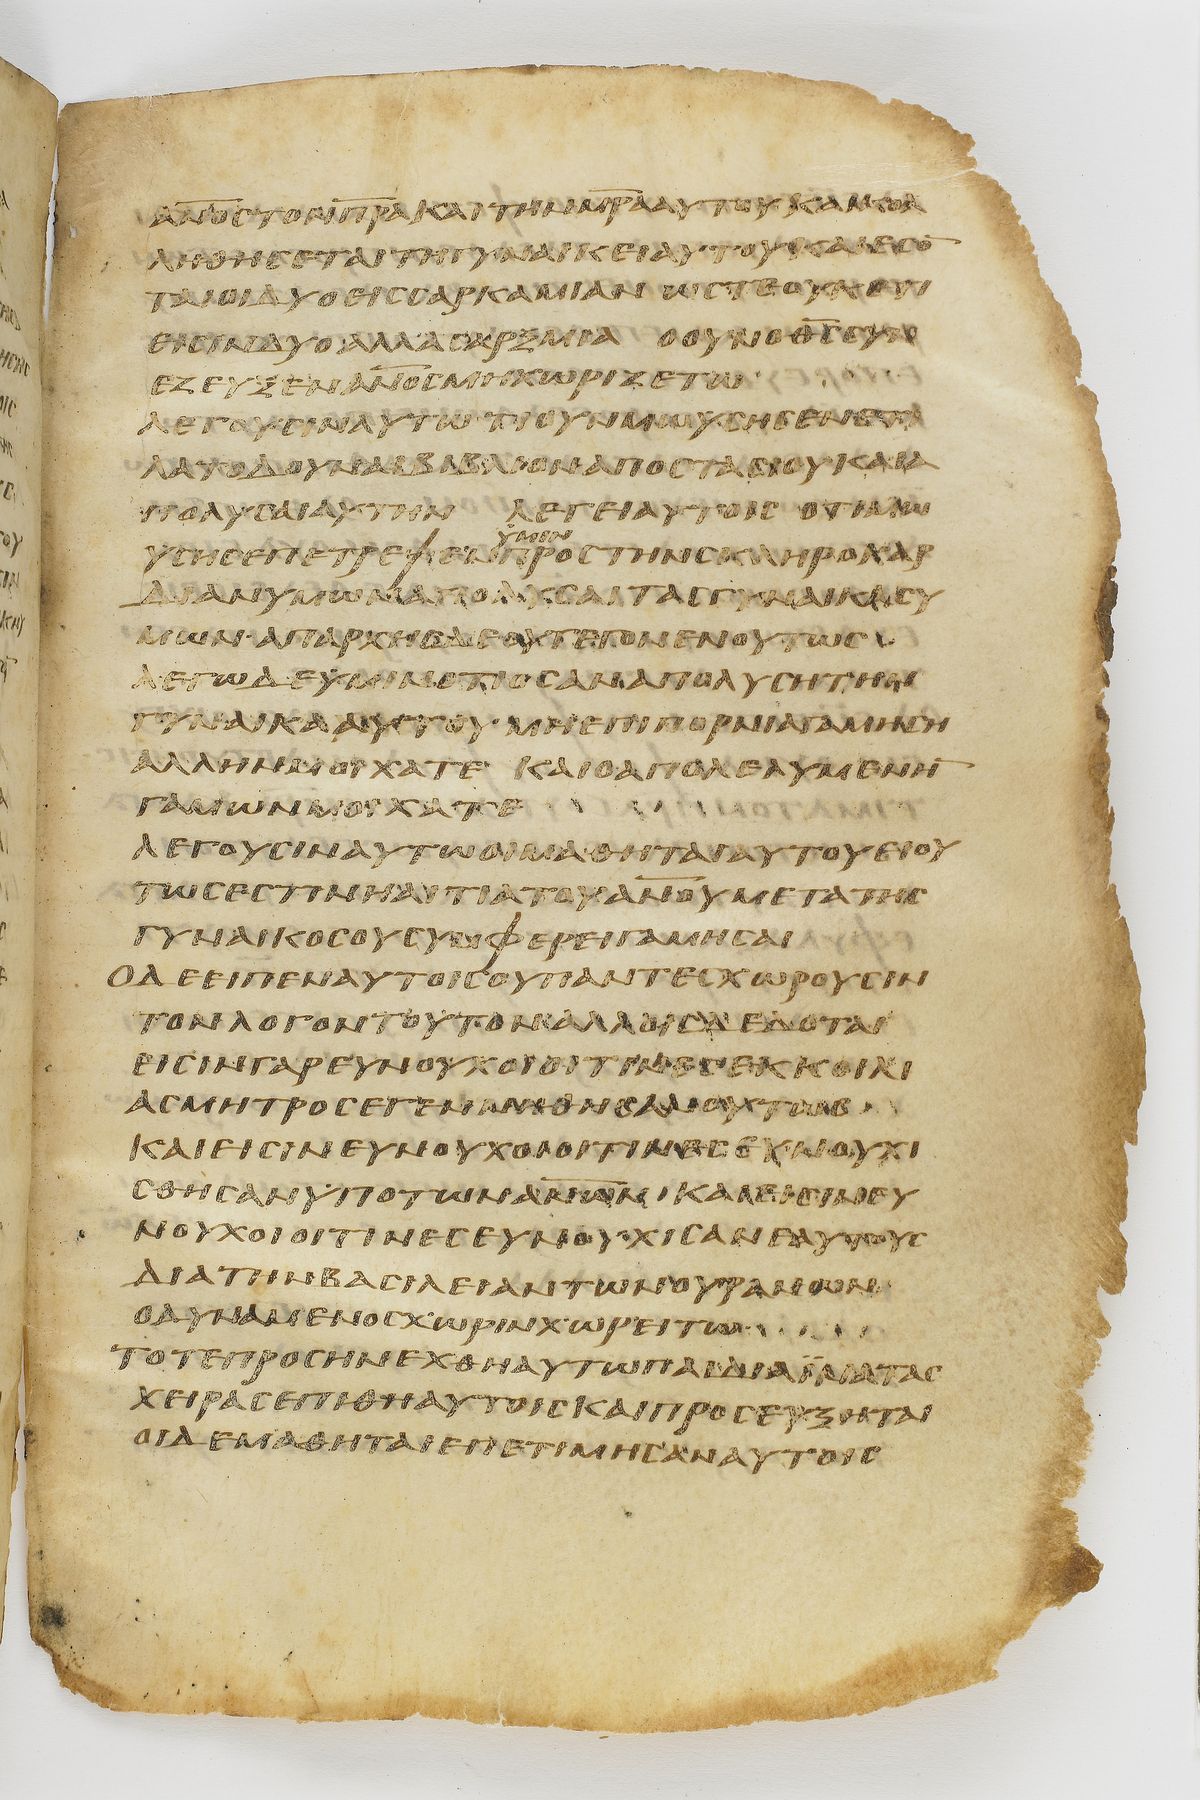 ΑΝΟΣΤΟΝΠΡΑΚΑΙΤΗΝΜΡΑΑΥΤΟΥΚΑΙΚΟΛ
ΛΗΘΗΣΕΤΑΙΤΗΓΥΝΑΙΚΕΙΑΥΤΟΥΚΑΙΕΣΟ
ΤΑΙΟΙΔΥΟΕΙΣΣΑΡΚΑΜΙΑΝ ΩΣΤΕΟΥΚΕΤΙ
ΕΙΣΙΝΔΥΟ ΑΛΛΑΣΑΡΞΜΙΑ ΟΟΥΝΟΘΣΣΥΝ
ΕΖΕΥΞΕΝΑΝΟΣΜΗΧΩΡΙΖΕΤΩ
ΛΕΓΟΥΣΙΝΑΥΤΩ ΤΙΟΥΝΜΩΥΣΗΣΕΝΕΤΙ
ΛΑΤΟΔΟΥΝΑΙΒΙΒΛΙΟΝΑΠΟΣΤΑΣΙΟΥΚΑΙΑ
ΠΟΛΥΣΑΙΑΥΤΗΝ ΛΕΓΕΙΑΥΤΟΙΣ ΟΤΙΜΩ
ΥΣΗΣΕΠΕΤΡΕΨΕΝΥΜΙΝΠΡΟΣΤΗΝΣΚΛΗΡΟΚΑΡ
ΔΙΑΝΥΜΩΝΑΠΟΛΥΣΑΙΤΑΣΓΥΝΑΙΚΑΣΥ
ΜΩΝ ΑΠΑΡΧΗΣΔΕΟΥΓΕΓΟΝΕΝΟΥΤΩΣ
ΛΕΓΩΔΕΥΜΙΝΟΤΙΟΣΑΝΑΠΟΛΥΣΗΤΗΝ
ΓΥΝΑΙΚΑΑΥΤΟΥ ΜΗΕΠΙΠΟΡΝΙΑΓΑΜΗΣΗ
ΑΛΛΗΝΜΟΙΧΑΤΕ ΚΑΙΟΑΠΟΛΕΛΥΜΕΝΗ
ΓΑΜΩΝΜΟΙΧΑΤΕ
ΛΕΓΟΥΣΙΝΑΥΤΩΟΙΜΑΘΗΤΑΙΑΥΤΟΥΕΙΟΥ
ΤΩΣΕΣΤΙΝΗΑΙΤΙΑΤΟΥΑΝΟΥΜΕΤΑΤΗΣ
ΓΥΝΑΙΚΟΣΟΥΣΥΜΦΕΡΕΙΓΑΜΗΣΑΙ
ΟΔΕΕΙΠΕΝΑΥΤΟΙΣΟΥΠΑΝΤΕΣΧΩΡΟΥΣΙΝ
ΤΟΝΛΟΓΟΝΤΟΥΤΟΝΑΛΛΟΙΣΔΕΔΟΤΑΙ
ΕΙΣΙΝΓΑΡΕΥΝΟΥΧΟΙΟΙΤΙΝΕΣΕΚΚΟΙΛΙ
ΑΣΜΗΤΡΟΣΕΓΕΝΝΗΘΗΣΑΝΟΥΤΩΣ
ΚΑΙΕΙΣΙΝΕΥΝΟΥΧΟΙΟΙΤΙΝΕΣΕΥΝΟΥΧΙ
ΣΘΗΣΑΝΥΠΟΤΩΝΑΝΩΝ ΚΑΙΕΙΣΙΝΕΥ
ΝΟΥΧΟΙΟΙΤΙΝΕΣΕΥΝΟΥΧΙΣΑΝΕΑΥΤΟΥΣ
ΔΙΑΤΗΝΒΑΣΙΛΕΙΑΝΤΩΝΟΥΡΑΝΩΝ
ΟΔΥΝΑΜΕΝΟΣΧΩΡΙΝΧΩΡΕΙΤΩ
ΤΟΤΕΠΡΟΣΗΝΕΧΘΗΑΥΤΩΠΑΙΔΙΑΙΝΑΤΑΣ
ΧΕΙΡΑΣΕΠΙΘΗΑΥΤΟΙΣΚΑΙΠΡΟΣΕΥΞΗΤΑΙ
ΟΙΔΕΜΑΘΗΤΑΙΕΠΕΤΙΜΗΣΑΝΑΥΤΟΙΣ